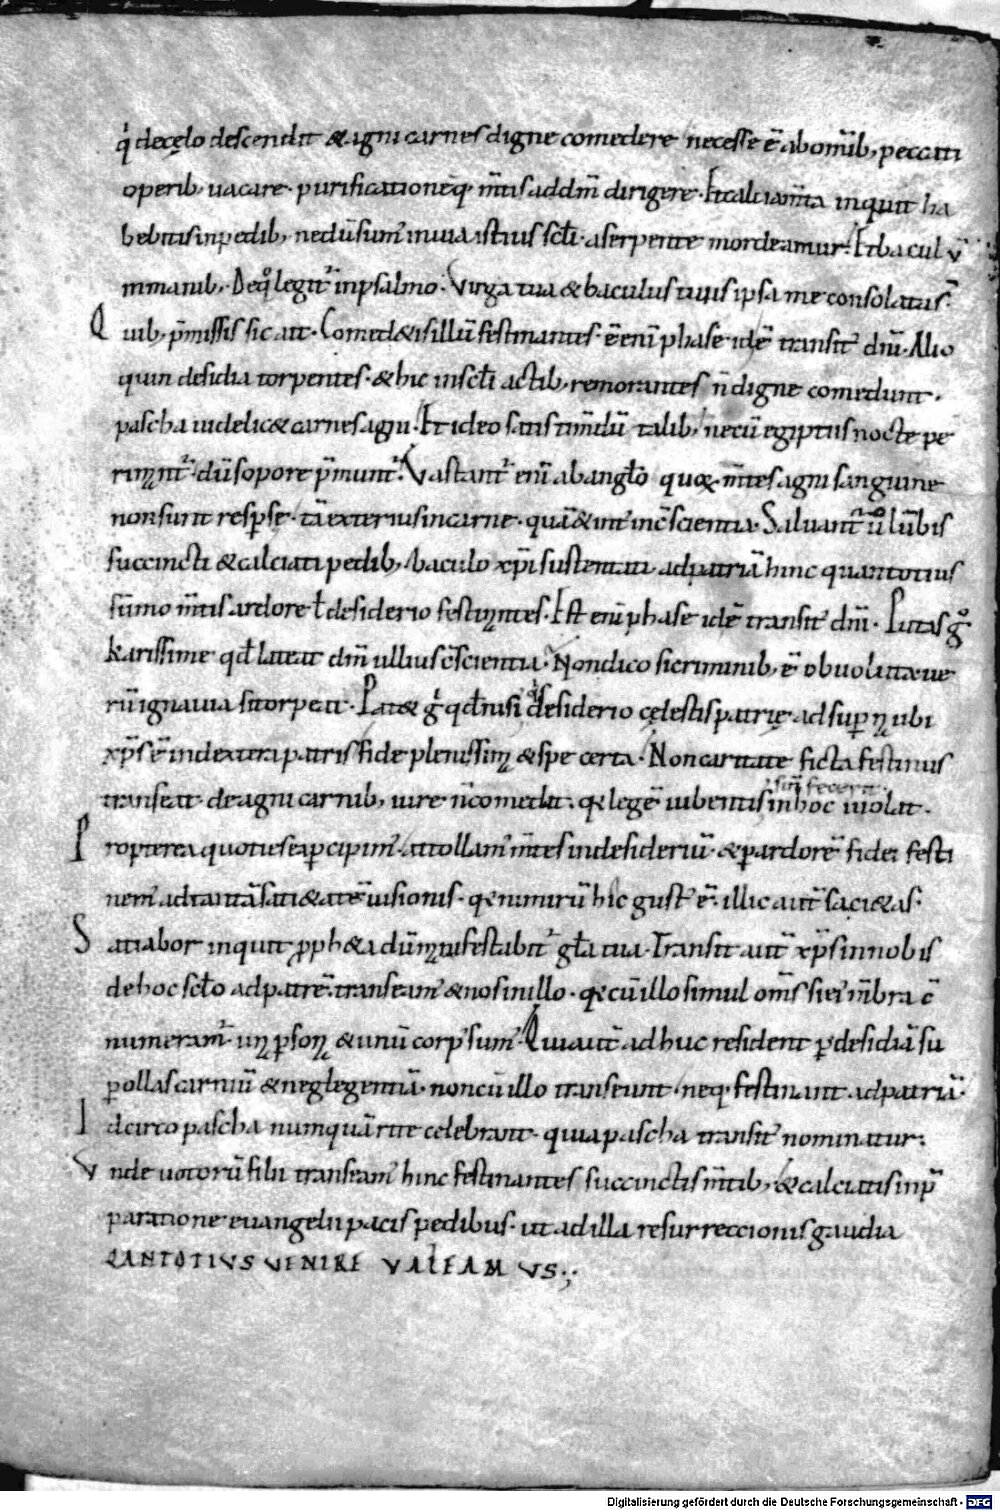 q͛ de cęlo descendit & agni carnes digne comedere necesse ē ab om̄ib; peccati
operib; uacare · purificationēq; m̄tis ad dm̄ dirigere · Et calciam̄ta inquit ha
bebitis in pedib; ne dū sum͛ in uia istius sc̄li · a serpente mordeamur · Et bacul v̄
in manib; De q͛ legit͛ in psalmo · Virga tua & baculus tuus ipsa me consolata s̄
Quib; p̄missis sic ait · Comed&is illū festinantes · ē eni phase idē transit͛ dm̄ · Alio
quin desidia torpentes · & hic in sc̄li actib; remorantes n̄ digne comedunt ·
pascha uidelic& carnes agni · Et ideo satis tim̄dū talib; ne cū egiptiis nocte pe
rimant͛ · dū sopore p̄munt͛ · Vastant͛ enī ab angło quoꝝ m̄tes agni sanguine
non sunt resp̄se · tā exterius in carne · quā & int͛ in c̄scientia · Saluant͛ ū lūbis
succincti & calciati pedib; baculo xp̄i sustentati · ad patriā hinc quantotius
sūmo m̄tis ardore ł desiderio festinantes · Est enī phase idē transit͛ dm̄ · Putas g͛
karissime qd̄ lateat dm̄ ullius c̄scientia · Non dico si criminib; ē obuoluta · ue
rū ignauia si torpeat · Pat& g͛ qd̄ nisi q͛s desiderio cęlestis patrię ad superna ubi
xp̄s ē in dextera patris fide plenissima & spe certa · Non caritate ficta festinus
transeat de agni carnib; uire n̄ comedit · q; legē iubentis in hoc uiolat ·
sin̄ fecerit ·
Propterea quotiens ea p̄cipim͛ · attollam͛ m̄tes in desideriū · & p ardorē fidei festi
nem͛ ad tantā satietatē uisionis · q; nimirū hic gust͛ ē · illic aut̄ saci&as ·
Satiabor inquit pph&a dū manifestabit͛ gła tua · Transit aut̄ xp̄s in nobis
de hoc sc̄lo ad patrē · transeam͛ & nos in illo · q; cū illo simul om̄s sic͛ m̄bra c̄
numeram͛ · una psona & unū corp͛ sum͛ · Qui aut̄ adhuc resident p desidiā su
p ollas carniū & neglegentiā · non cū illo transeunt · neq; festinant ad patriā ·
Idcirco pascha numquā rite celebrant · quia pascha transit͛ nominatur ;
Vnde uotorū filii transeam͛ hinc festinantes succinctis m̄tib; & calciatis in p̄
paratione euangelii pacis pedibus · ut ad illa resurreccionis gaudia
QANTOTIVS VENIRE VALEAMVS ;